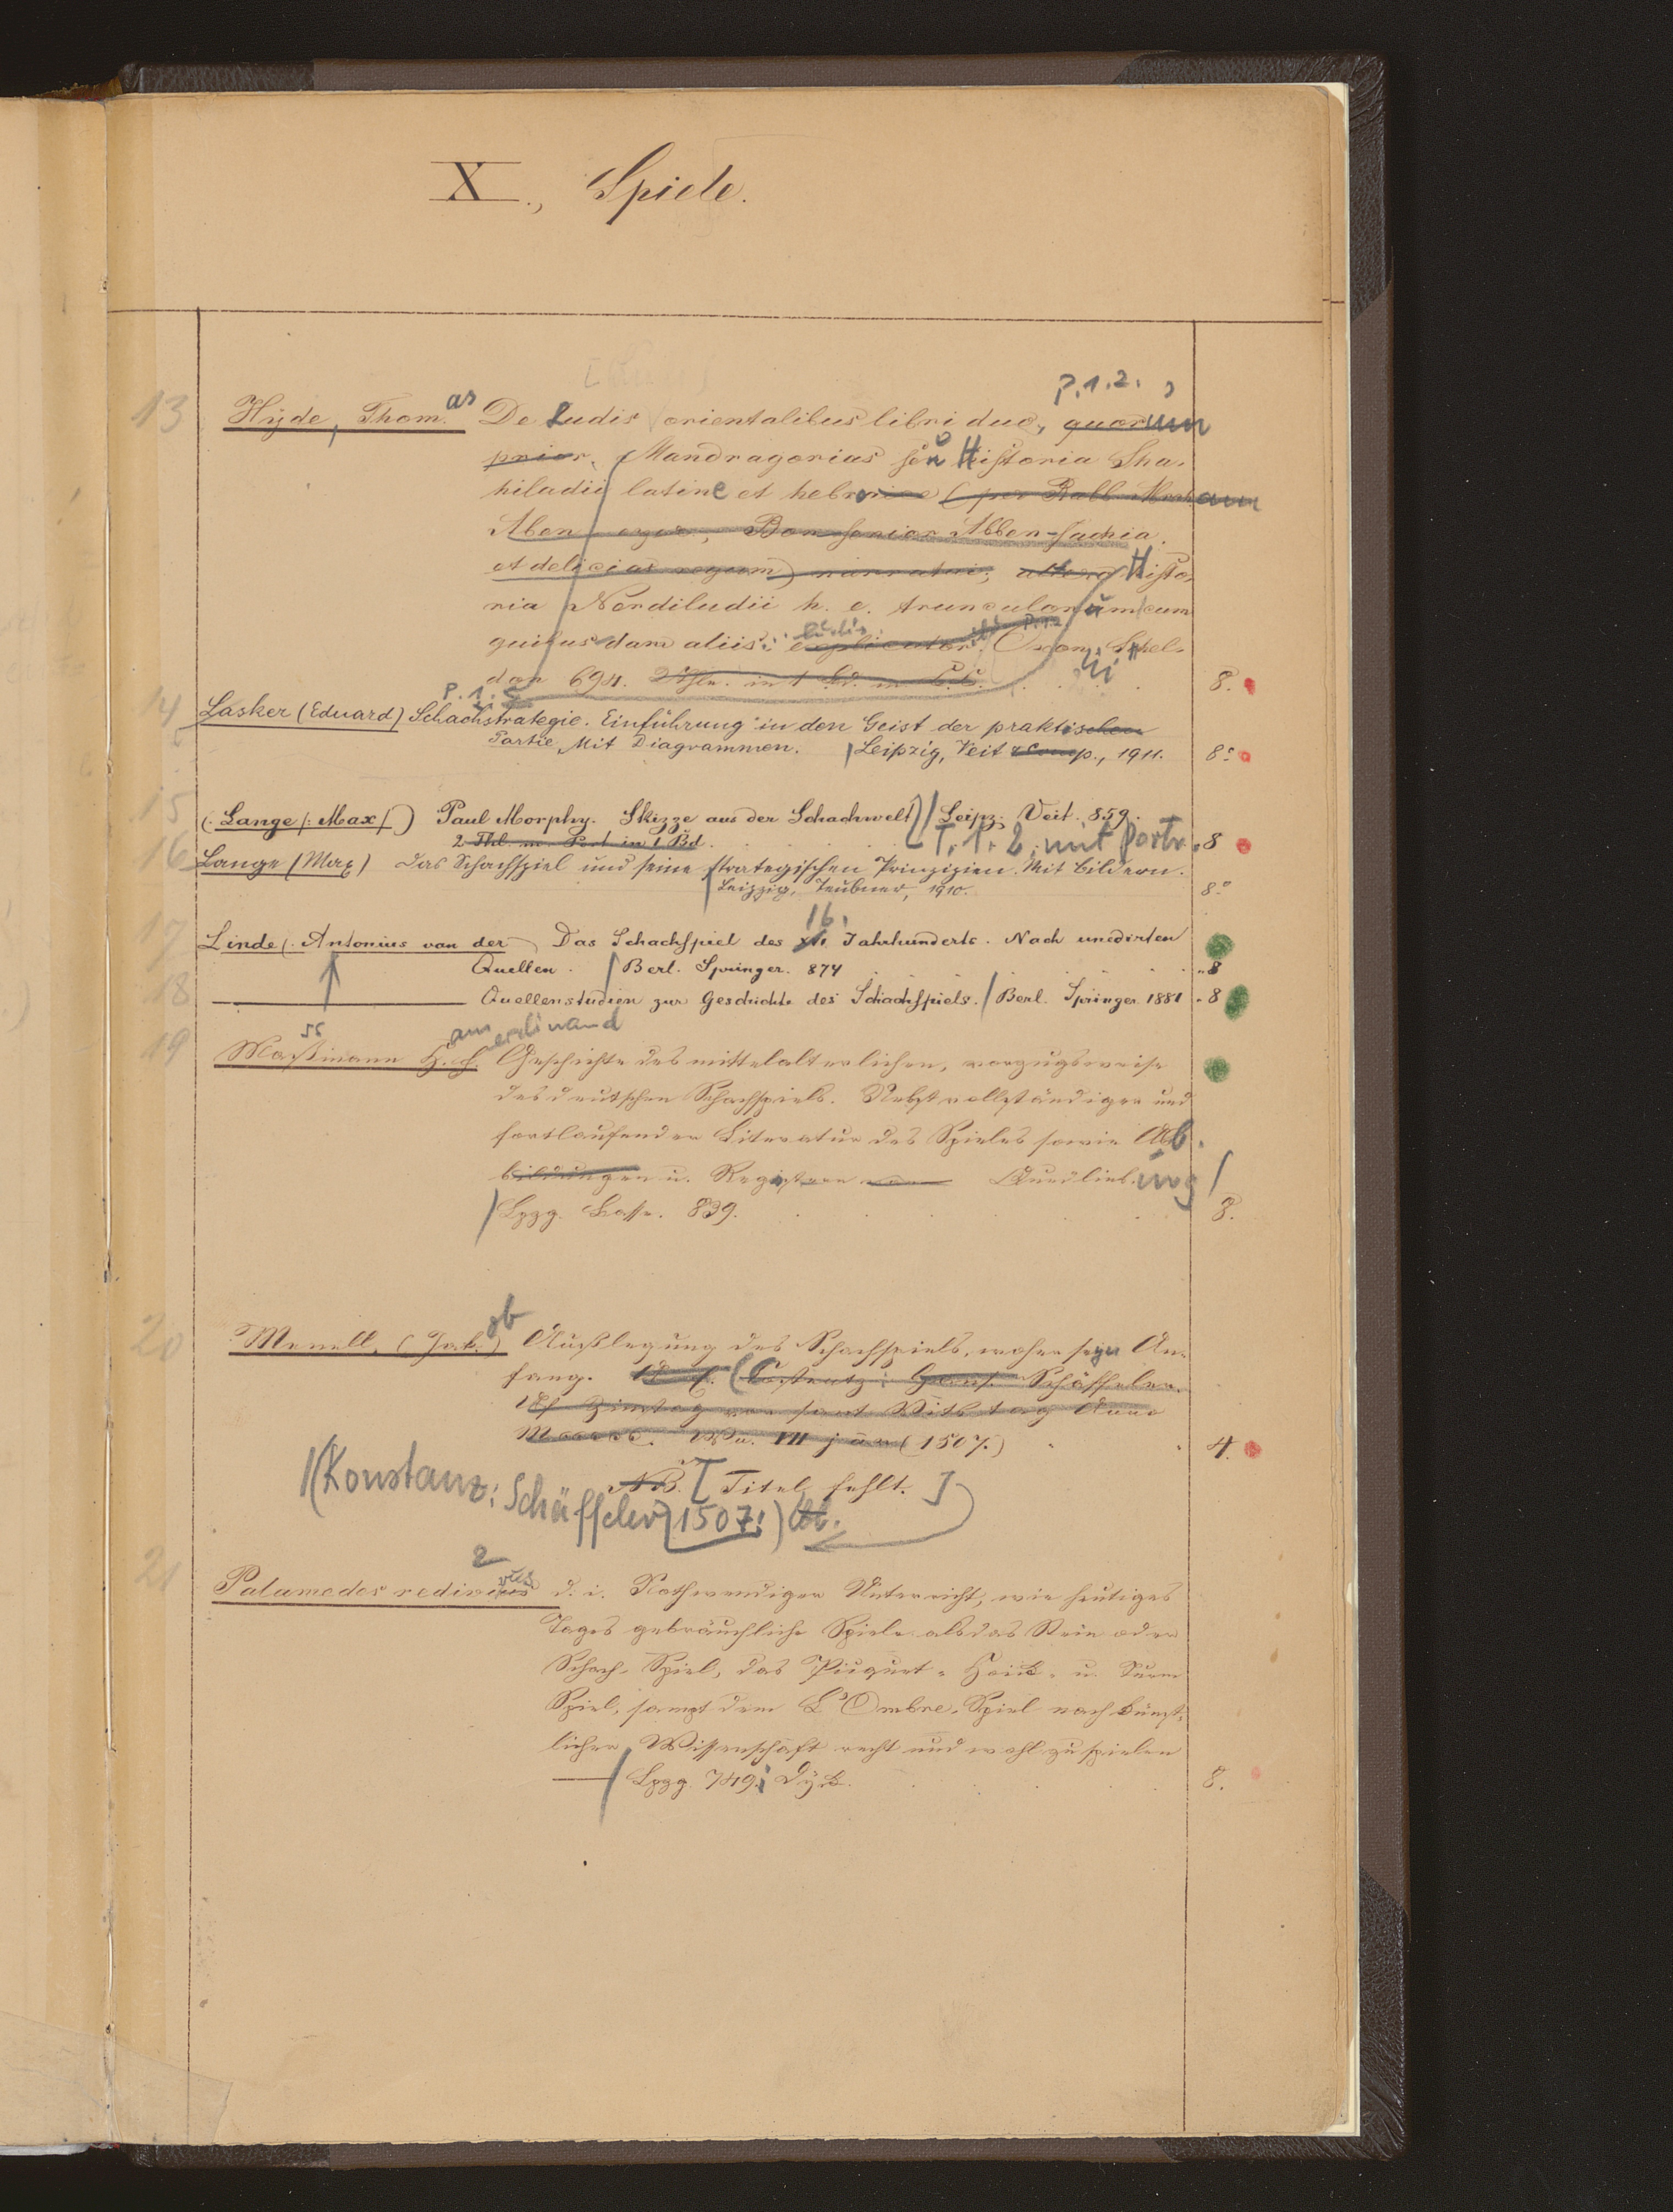 X., Spiele.
P. 1. 2.
13 Hyde, Thom.as De Ludis orientalibus libri duo, quorum
prior, Mandragorias seu Historia Sha-
hiludii latine et hebr
Aben
et delicias regum) ; altera Histo-
ria Nerdiludii h. e. trunculorum cum
quibusdam aliis. Oxon. Shel-
don 694. 8.
P. 1. 2
14 Lasker (Eduard) Schachstrategie. Einführung in den Geist der praktischen
Partie, Mit Diagrammen. Leipzig, Veit & Comp., 1911. 8°
15 (Lange (: Max) Paul Morphy. Skizze aus der Schachwelt Leipz. Veit. 859.
2 Thl. m. Port in 1 Bd. T. 1. 2. mit Portr. 8
16 Lange (Max) Das Schachspiel und seine strategischen Prinzipien. Mit Bildern.
Leipzig, Teubner, 1910. 8°
16.
17 Linde (: Antonius van der Das Schachspiel des XVI Jahrhunderts. Nach unedirten
Quellen. Berl. Springer. 874 8
18 Quellenstudien zur Geschichte des Schachspiels. Berl. Springer 1881 8
ss erdinand
19 Maßmann H. F. Geschichte des mittelalterlichen, vorzugsweise
des deutschen Schachspiels. Nebst vollständiger und
fortlaufender Literatur des Spieles sowie Ab-
bildungen u. Registern Quedlinb.urg
Lpzg. Basse. 839. 8.
20 Menell, (Jak.ob) Außlegung des Schachspiels, woher seyn An-
fang. (Costentz: Schäffeler.
Anno
VII jar (1507.) 4.
NB. [Titel fehlt.]
(Konstanz: Schäffeler 1507.)
21 Palamedes redivivus d. i. Nothwendiger Unterricht, wie heutiges
Tages gebräuchliche Spiele als das Stein oder
Schach-Spiel, das Piquet- u.
Spiel, sampt dem L'Ombre-Spiel nach künst-
licher Wissenschaft recht und wohl zu spielen
Lpzg. 749. Dyck. 8.